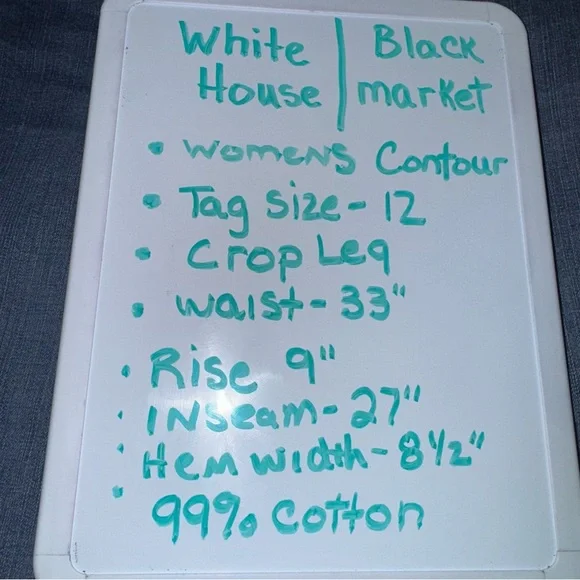 White | Black
House | market
• Womens Contour
• Tag Size - 12
• Crop Leg
• Waist - 33"
• Rise 9"
• INseam - 27"
• Hem width - 8 1/2"
• 99% Cotton